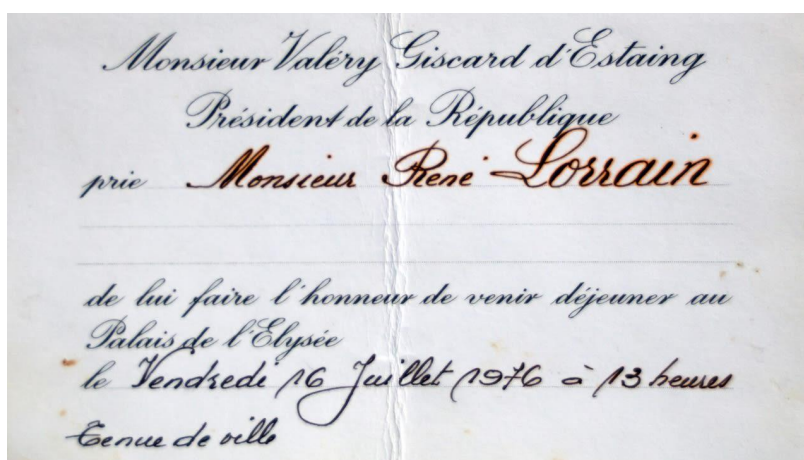 Monsieur Valéry Giscard d'Estaing
Président de la République
prie Monsieur René Lorrain
de lui faire l'honneur de venir déjeuner au
Palais de l'Elysée
le Vendredi 16 Juillet 1976 à 13 heures
Tenue de ville